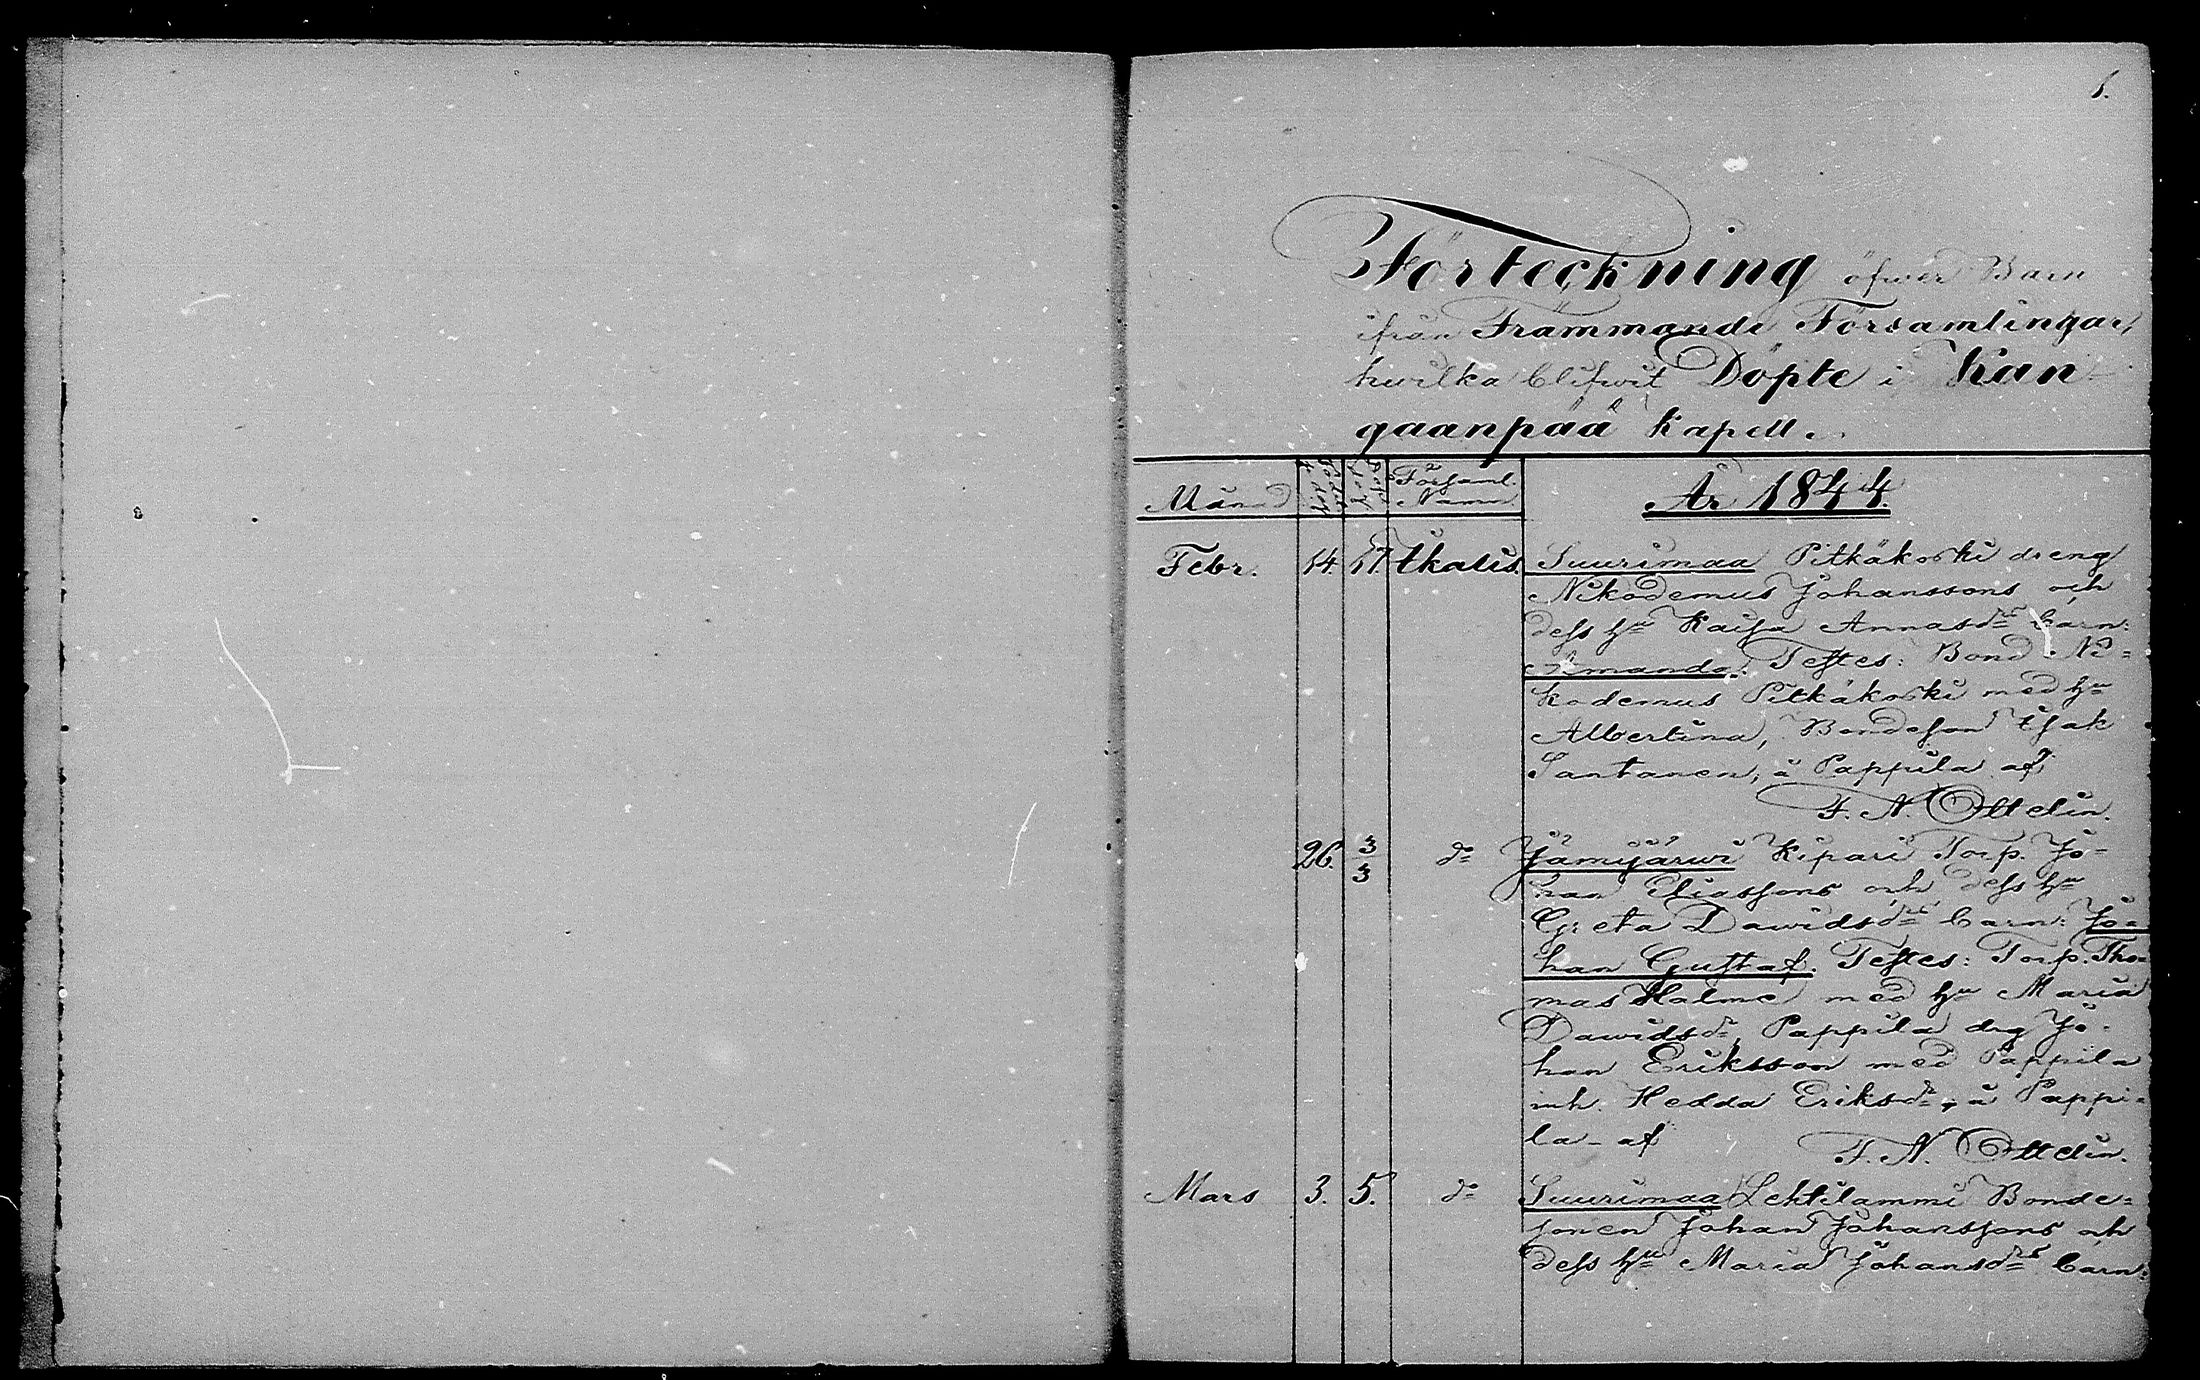 1.
Förteckning öfwer Barn
ifrån Främmande Församlingar,
hwilka blifwit Döpte i Kan-
gaanpää Kapell.
Månad
Församl. Namn
År 1844.
Febr. 14. 17. Ikalis. Suurimaa Pitkäkoski dreng
Nikodemus Johanssons och
dess hu Kaisa Annasdrs barn:
Amanda. Testes: Bond. Ni=
kodemus Pitkäkoski med hu
Albertina, Bondeson Isak
Santanen, å Pappila af
F. N. Ottelin.
26. 3/3 do Jämijärwi Kipari Torp. Jo=
han Eliassons och dess hu
Greta Dawidsdrs barn: Jo=
han Gustaf. Testes: Torp. Tho=
mas Halme med hu Maria
Dawidsdr, Pappila drg Jo-
han Eriksson med Pappila
inh. Hedda Eriksdr, å Pappi=
la af
F. N. Ottelin.
Mars 3. 5. do Suurimaa Lehtilammi Bonde=
sonen Johan Johanssons och
dess hu Maria Johansdrs barn: